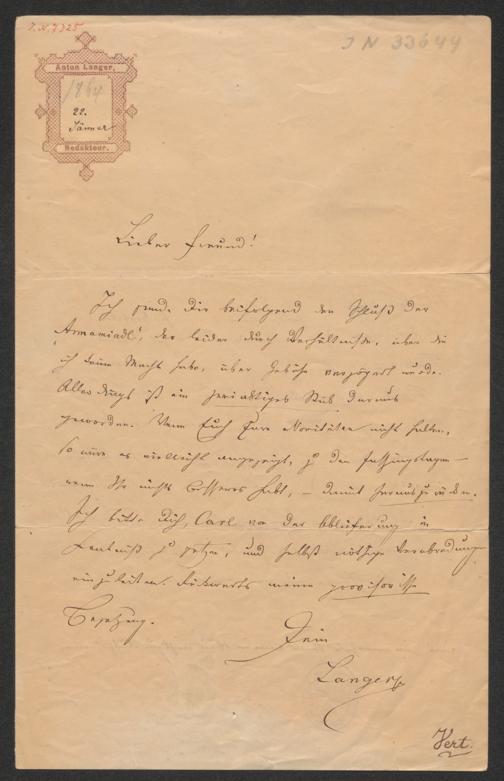 I. N. 7725
I N 33644
Anton Langer,
1864
22.
Jänner
Redakteur.
Lieber Freund!
Ich sende Dir beifolgend den Schluß der
der leider durch Verhältnisse, über die
ich keine Macht habe, über Gebühr verzögert wurde.
ist ein Stück daraus
geworden. Wenn Euch Eure Novitäten nicht halten,
so wäre es vielleicht angezeigt, zu den Faschingstagen –
wenn Ihr nichts Besseres habt, – damit herauszurücken.
Ich bitte Dich, Carl von der Ablieferung in
Kenntniß zu setzen, und selbst nöthige Verabredungen
einzuleiten. Rückwärts meine provisorische
Besetzung.
Dein
Langer
Vert.